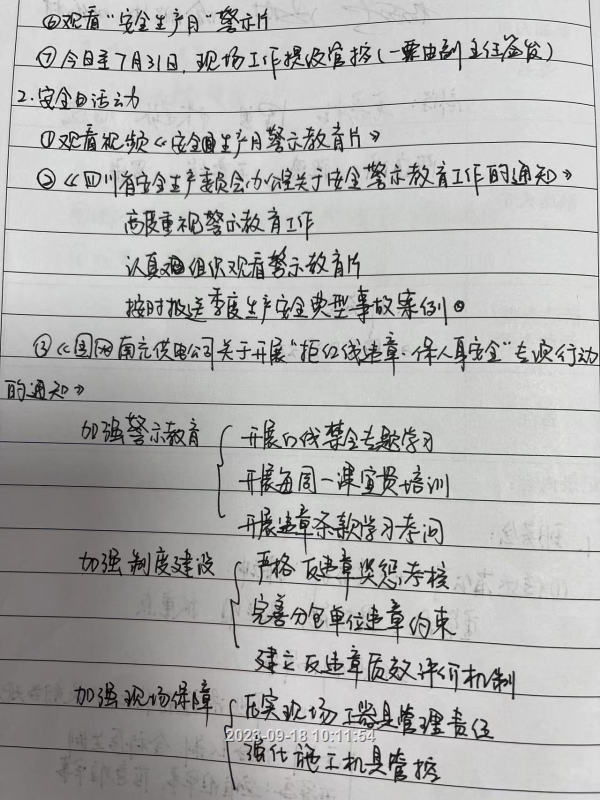 ⑥观看"安全生产月"警示片
⑦今日至7月31日,现场工作提级管控(一票由副主任签发)
2.安全日活动
①观看视频《安全生产月警示教育片》
②《四川省安全生产委员会办公室关于安全警示教育工作的通知》
高度重视警示教育工作
认真组织观看警示教育片
按时报送季度生产安全典型事故案例。
③《国网南充供电公司关于开展"拒红线违章·保人身安全"专项行动
的通知》
加强警示教育 开展红线禁令专题学习
开展每周一课宣贯培训
开展违章条款学习考问
加强制度建设 严格反违章奖惩考核
完善分包单位违章约束
建立反违章质效评价机制
加强现场保障 压实现场工器具管理责任
强化施工机具管控
2023-09-18 10:11:54